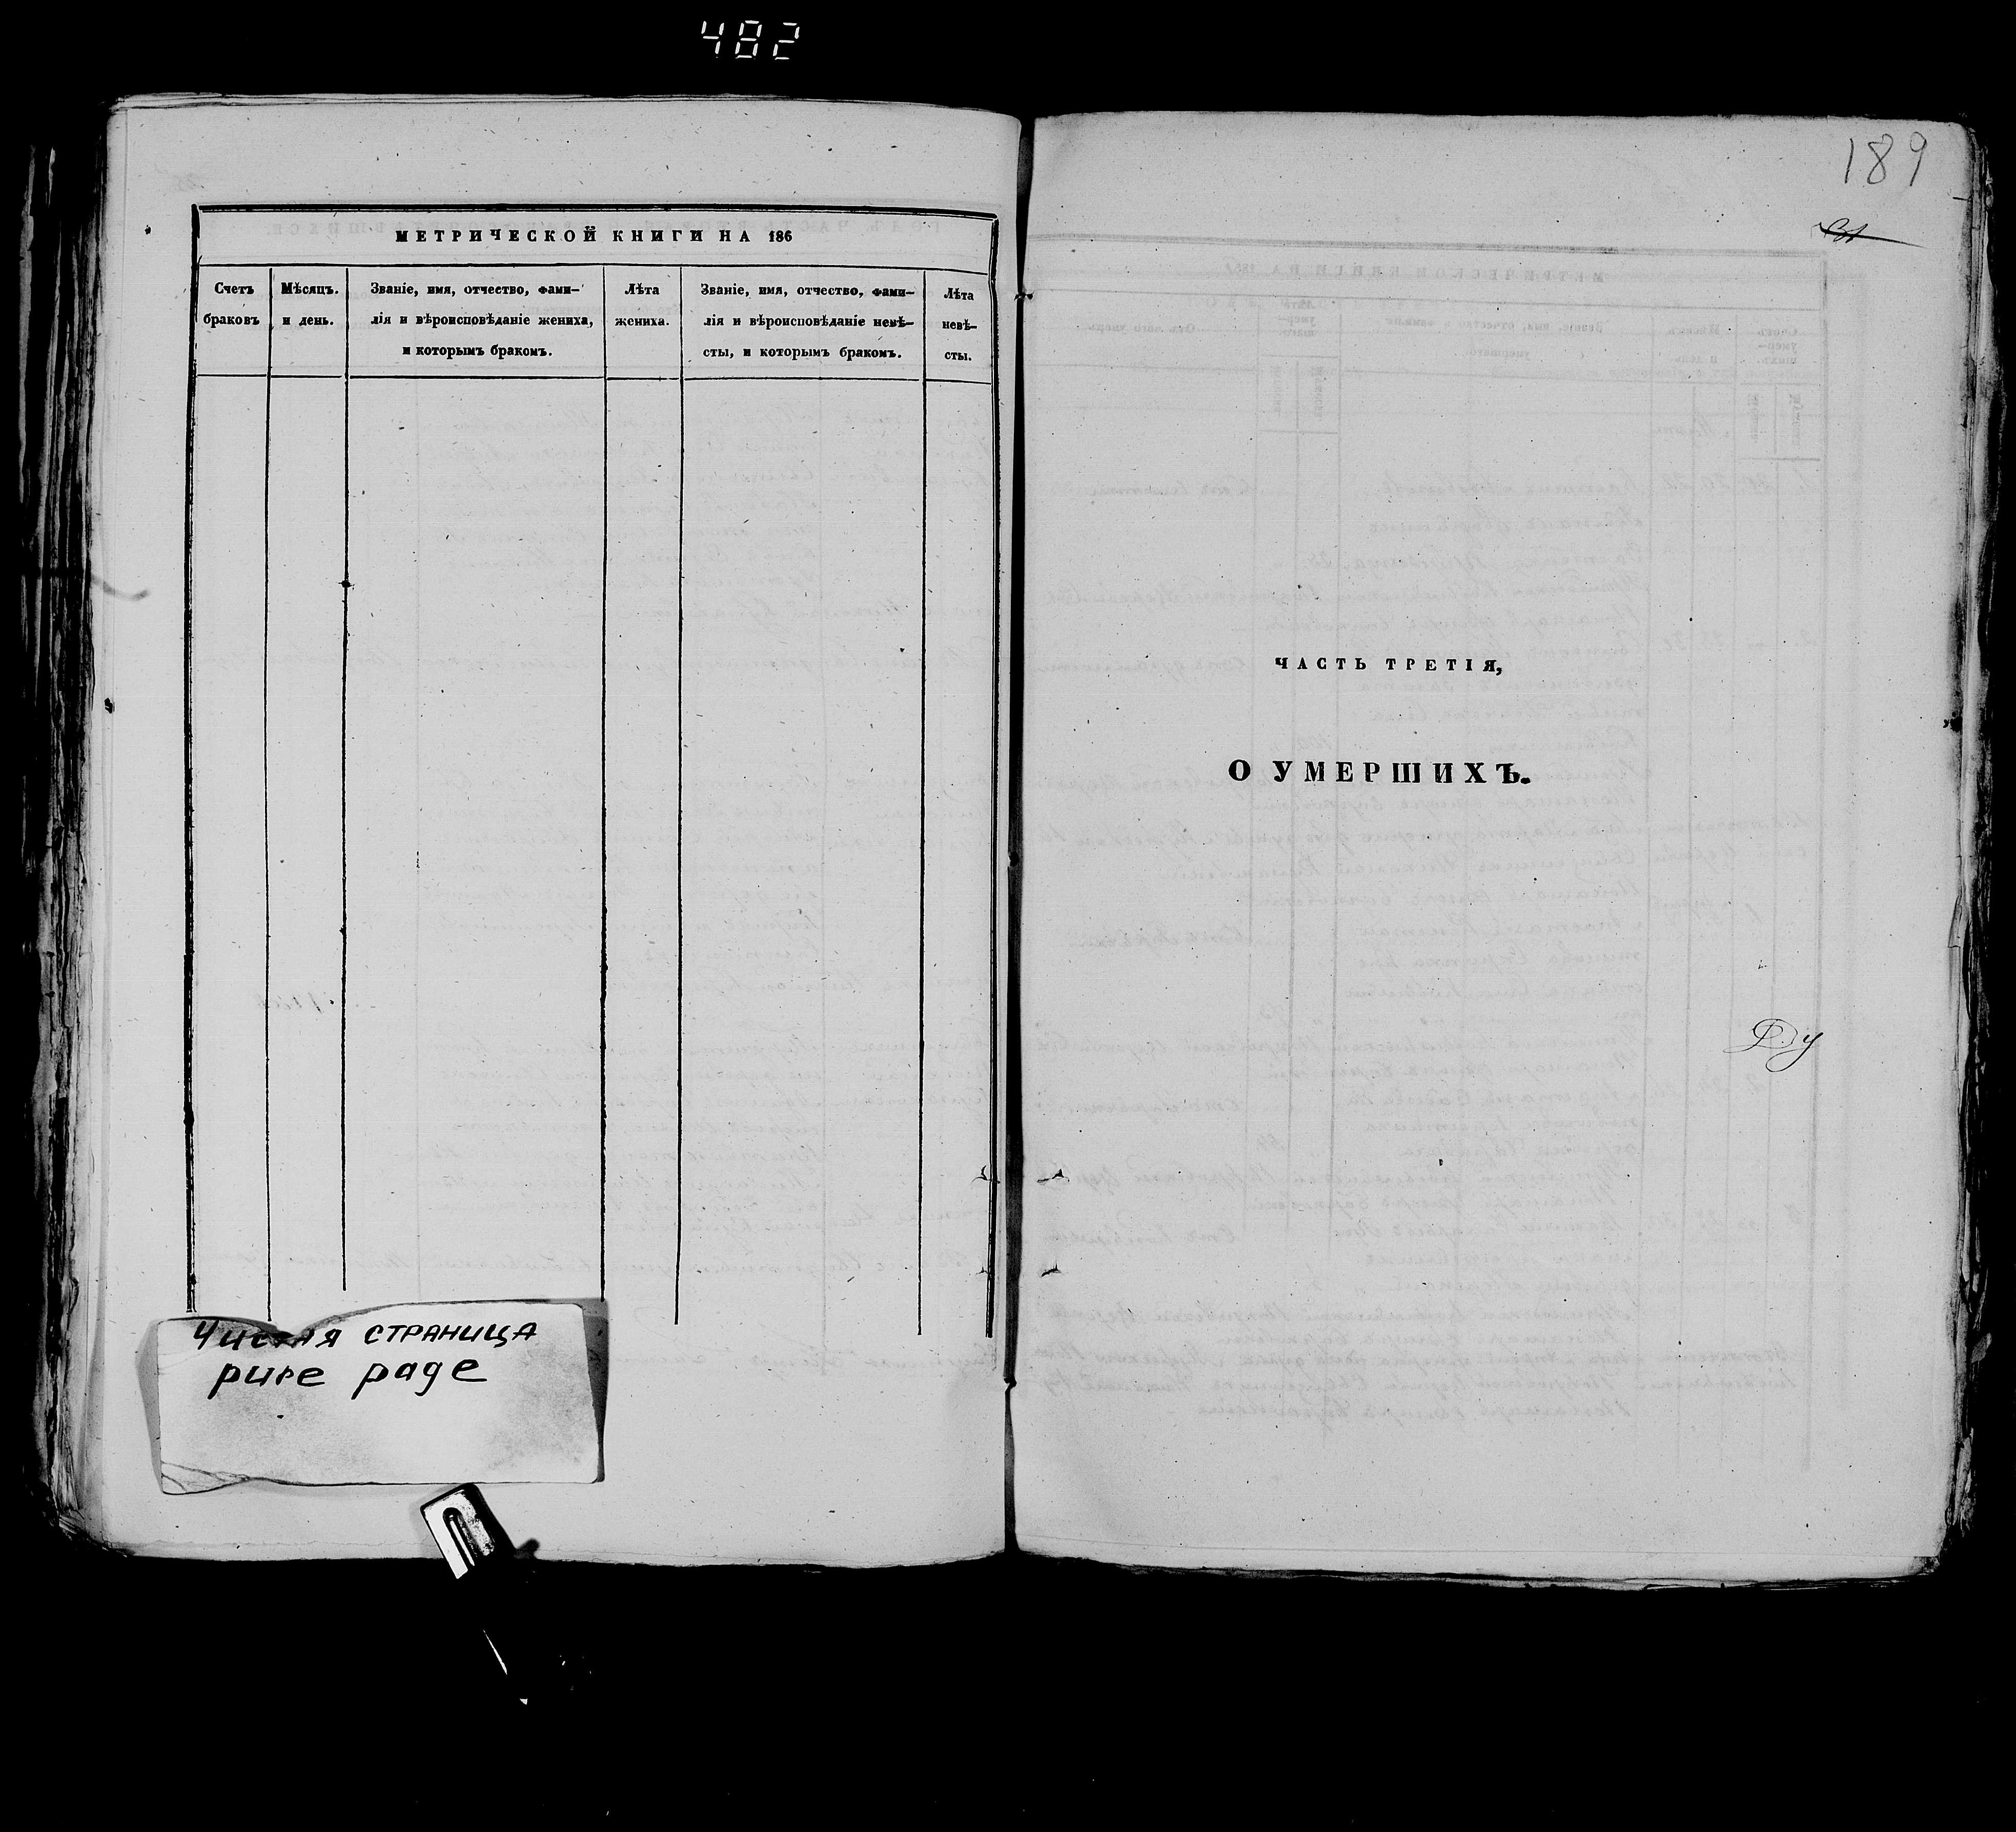 482
МЕТРИЧЕСКОЙ КНИГИ НА 186
Счетъ
браковъ
Мѣсяцъ.
и день.
Званіе, имя, отчество, фами-
лія и вѣроисповѣданіе жениха,
и которымъ бракомъ.
Лѣта
жениха.
Званіе, имя, отчество, фами-
лія и вѣроисповѣданіе невѣ-
сты, и которымъ бракомъ.
Лѣта
невѣ-
сты.
Чистая страница
pure page
189
ЧАСТЬ ТРЕТІЯ,
О УМЕРШИХЪ.